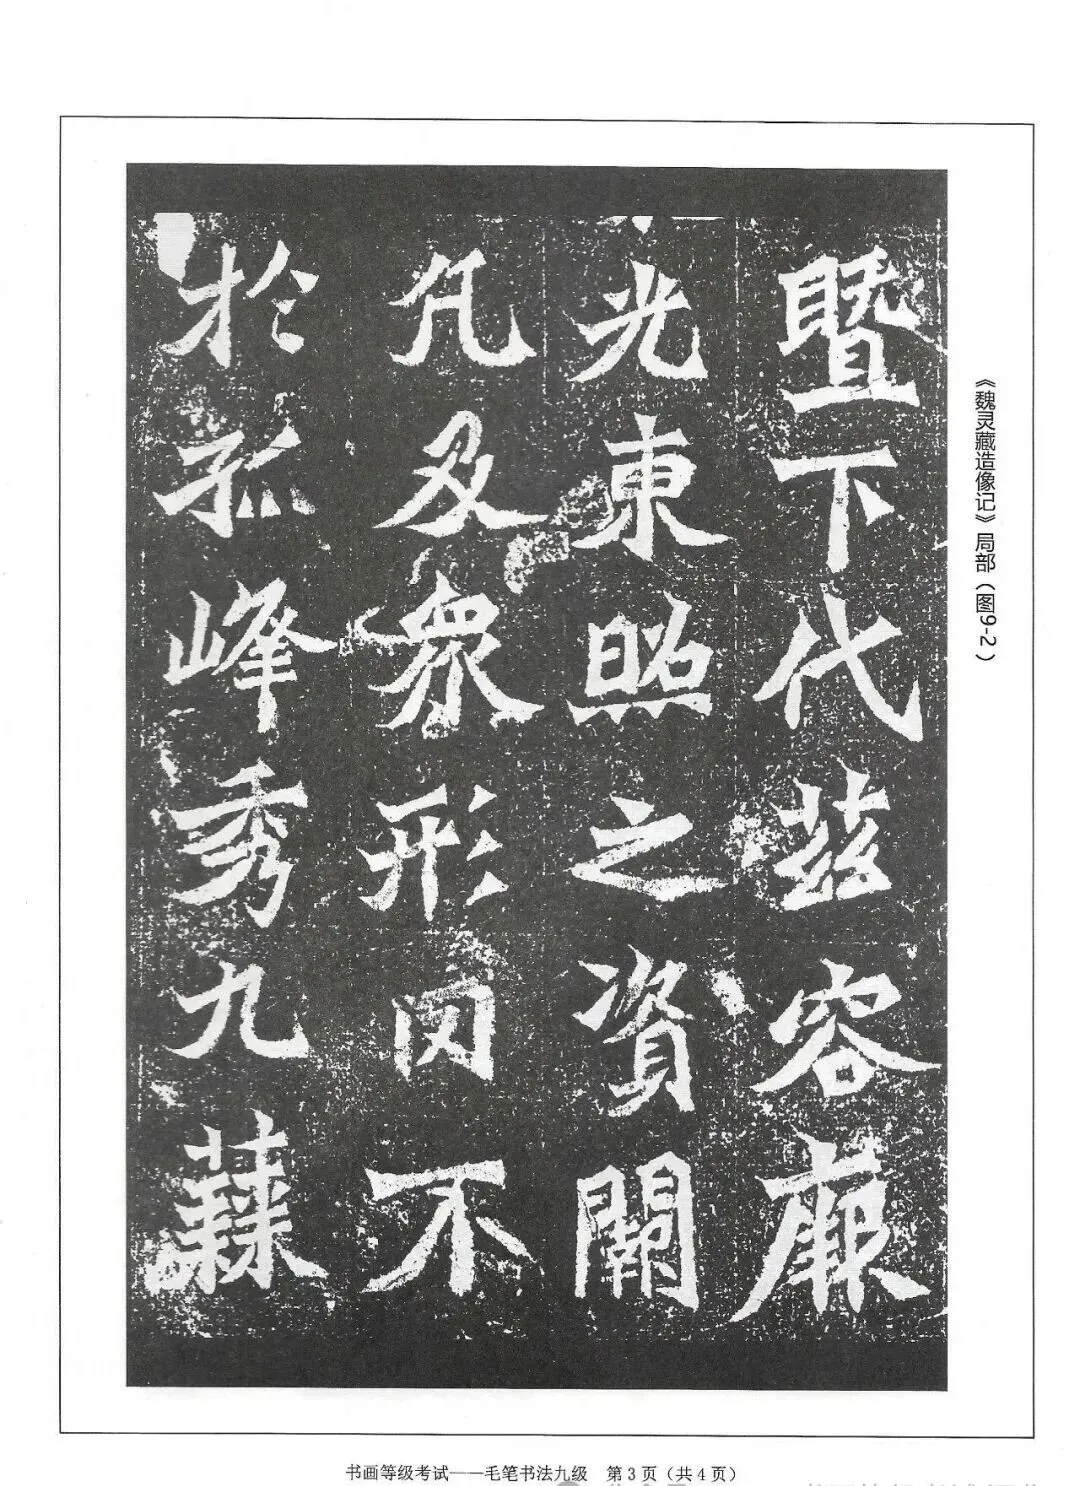 暨下代茲容厥
光東照之資闕
凡及衆形罔不
於孤峰秀九蕀
《魏灵藏造像记》局部（图9-2）
书画等级考试——毛笔书法九级 第3页（共4页）